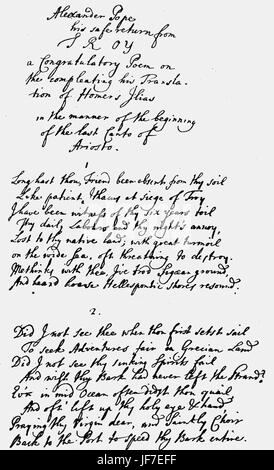 Alexander Pope
his safe return from
TROY
a Congratulatory Poem on
the compleating his Transla-
tion of Homers Ilias
in the manner of the beginning
of the last Canto of
Ariosto.
1
Long hast thou, Friend been absent from thy soil
Like patient Ithacus at siege of Troy
I have been witness of thy six years toil
Thy daily Labours and thy night's annoy,
Lost to thy native land, with great turmoil
on the wide Sea, oft threatning to destroy.
Methinks with thee, I've trod Sigæan ground,
And heard hoarse Hellespontic shores resound.
2.
Did I not see thee when thou first setst sail
To seek Adventures fair in Grecian Land
Did I not see thy sinking Spirits fail
And wish thy Bark had never left the Strand?
Ev'n in mid Ocean often didst thou quail
And oft lift up thy holy eye & hand
Praying thy Virgin dear, and Saintly Choir
Back to the Port to speed thy Bark entire.
a alamy stock photo
alamy
Image ID: JF7EFF
www.alamy.com